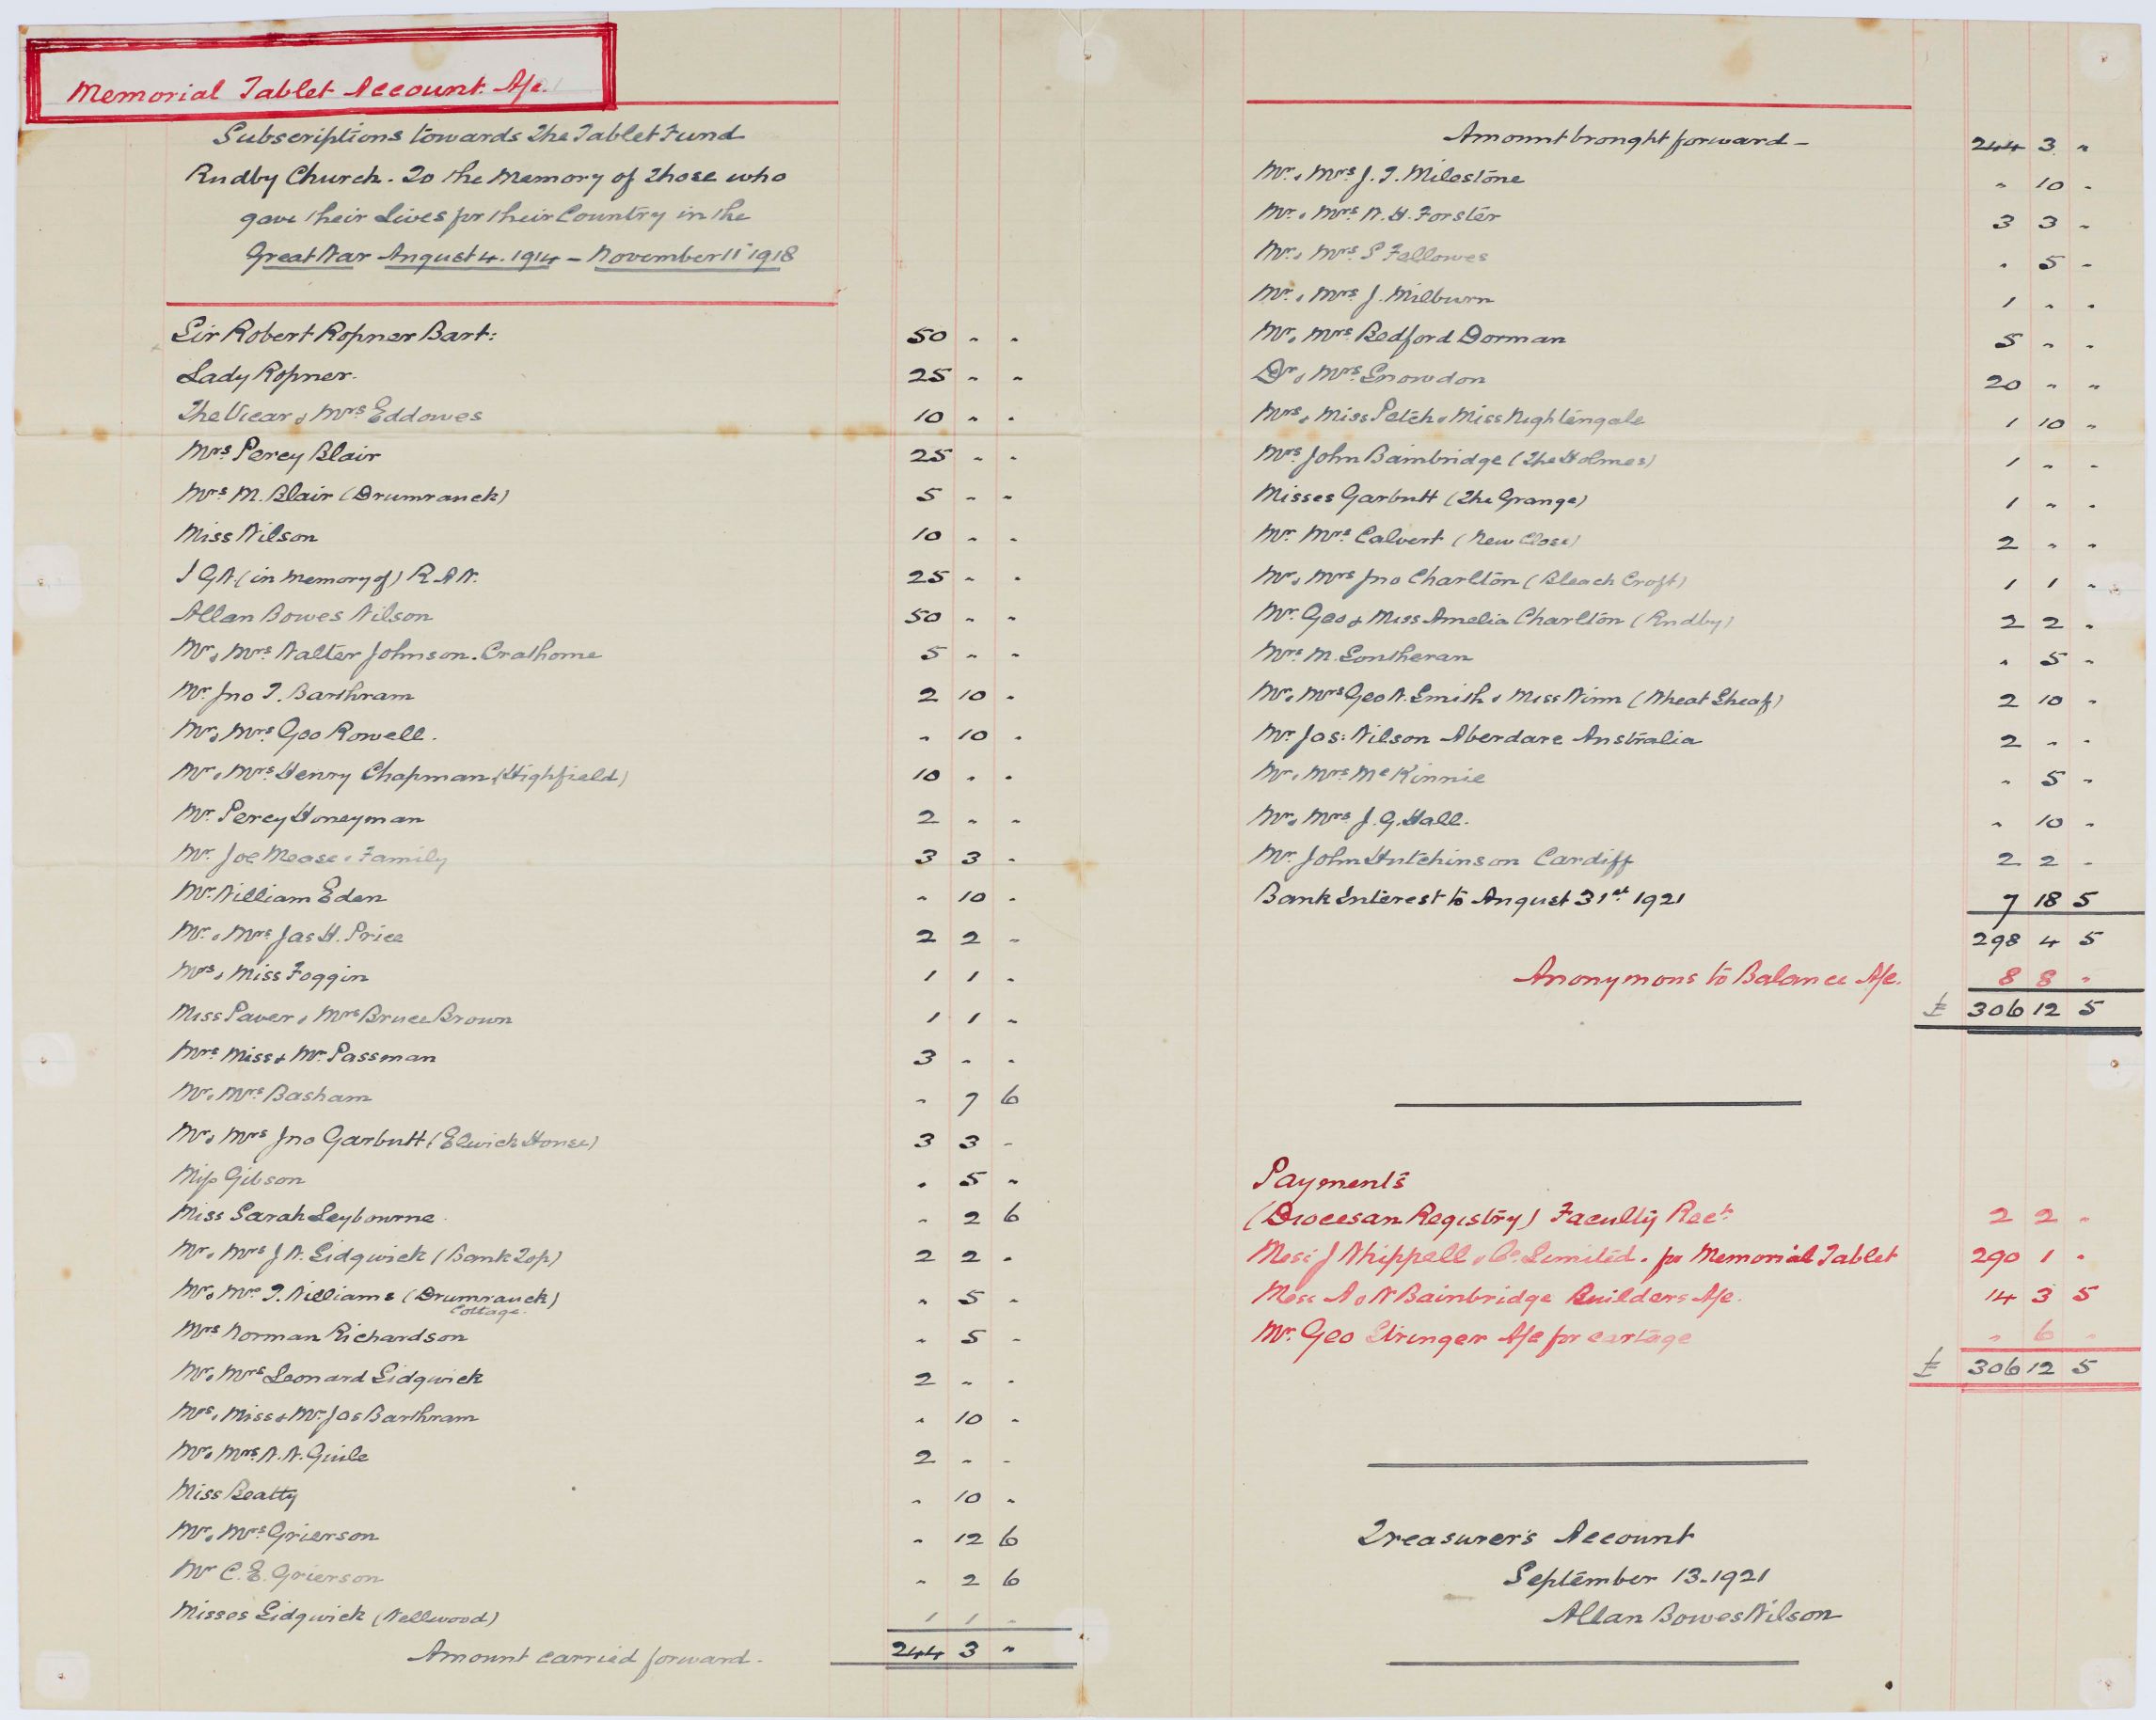 Memorial Tablet Account. A/c.
Subscriptions towards The Tablet Fund
Rudby Church. To the Memory of Those who
gave their Lives for their Country in the
Great War August 4. 1914 – November 11 1918
Sir Robert Ropner Bart: 50 " "
Lady Ropner. 25 " "
The Vicar & Mrs Eddowes 10 " "
Mrs Percy Blair 25 " "
Mrs M. Blair (Drumrauck) 5 " "
Miss Wilson 10 " "
J G W (in memory of) R.A.W. 25 " "
Allan Bowes Wilson 50 " "
Mr & Mrs Walter Johnson. Crathorne 5 " "
Mr. Jno T. Barthram 2 10 "
Mr & Mrs Geo Rowell. " 10 "
Mr & Mrs Henry Chapman (Highfield) 10 " "
Mr. Percy Honeyman 2 " "
Mr. Joe Mease & Family 3 3 "
Mr. William Eden " 10 "
Mr & Mrs Jas H. Price 2 2 "
Mrs & Miss Foggin 1 1 "
Miss Paver & Mrs Bruce Brown 1 1 "
Mrs Miss & Mr. Passman 3 " "
Mr & Mrs Basham " 7 6
Mr & Mrs Jno Garbutt (Elwick House) 3 3 "
Miss Gibson " 5 "
Miss Sarah Leybourne " 2 6
Mr & Mrs J W. Sidgwick (Bank Top) 2 2 "
Mr & Mrs T. Williams (Drumrauck) " 5 "
Cottage.
Mrs Norman Richardson " 5 "
Mr & Mrs Leonard Sidgwick 2 " "
Mrs, Miss & Mr. Jas Barthram " 10 "
Mr & Mrs W. W. Guile 2 " "
Miss Beatty " 10 "
Mr & Mrs Grierson " 12 6
Mr C. E. Grierson " 2 6
Misses Sidgwick (Wellwood) 1 1 "
Amount carried forward. 244 3 "
Amount brought forward – 244 3 "
Mr & Mrs J. T. Milestone " 10 "
Mr & Mrs W. H. Forster 3 3 "
Mr & Mrs S Fellowes " 5 "
Mr & Mrs J. Milburn 1 " "
Mr & Mrs Bedford Dorman 5 " "
Dr & Mrs Snowdon 20 " "
Mrs & Miss Petch & Miss Nightingale 1 10 "
Mrs John Bainbridge (The Holmes) 1 " "
Misses Garbutt (The Grange) 1 " "
Mr Mrs Calvert (New Close) 2 " "
Mr & Mrs Jno Charlton (Bleach Croft) 1 1 "
Mr. Geo & Miss Amelia Charlton (Rudby) 2 2 "
Mrs M. Southeran " 5 "
Mr & Mrs Geo W. Smith & Miss Winn (Wheat Sheaf) 2 10 "
Mr Jas: Wilson Aberdare Australia 2 " "
Mr & Mrs McKinnie " 5 "
Mr & Mrs J. G. Hall. " 10 "
Mr. John Hutchinson Cardiff 2 2 "
Bank Interest to August 31st 1921 7 18 5
298 4 5
Anonymous to Balance A/c. 8 8 "
£ 306 12 5
Payments
(Diocesan Registry) Faculty Rect 2 2 "
Mess J Whippell & Co Limited. for Memorial Tablet 290 1 "
Mess A & W Bainbridge Builders A/c. 14 3 5
Mr. Geo Stringer A/c for cartage " 6 "
£ 306 12 5
Treasurer's Account
September 13. 1921
Allan Bowes Wilson